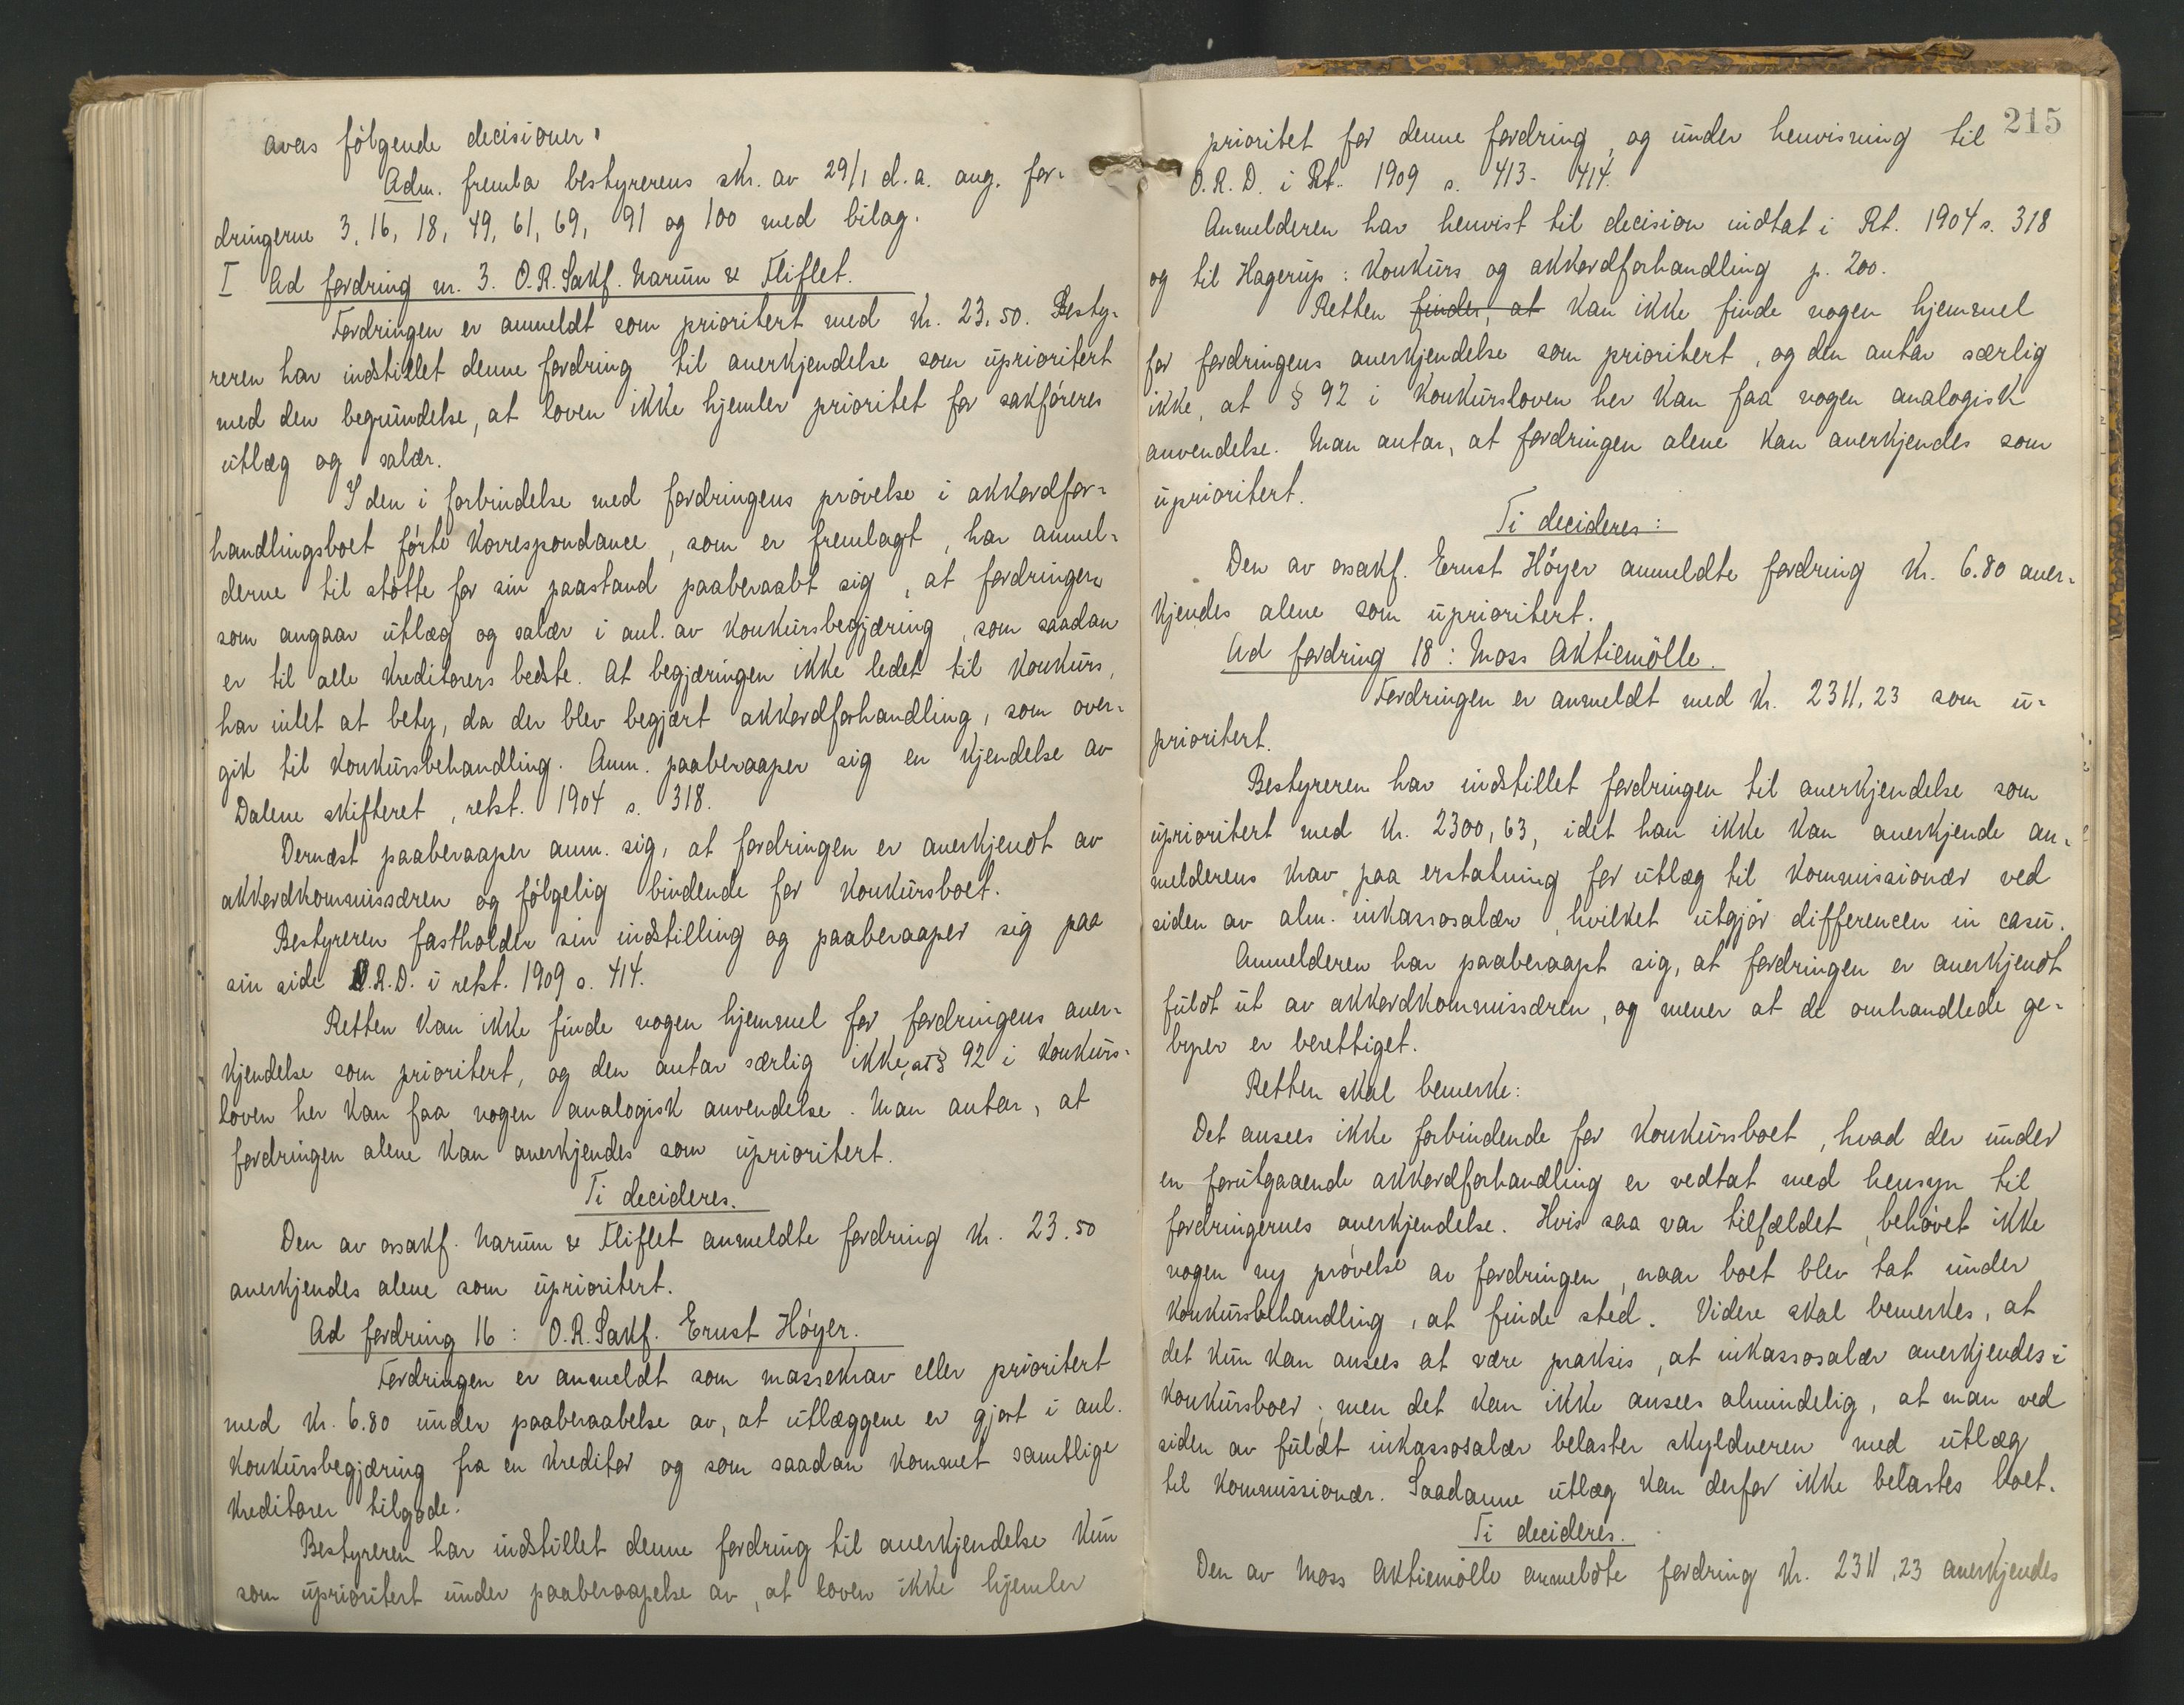 avas følgende decisioner:
Adm. fremla bestyrerens skr. av 29/1 d.a. ang. for-
dringerne 3, 16, 18, 49, 61, 69, 91 og 100 med bilag.
I Ad fordring nr. 3. O.R.Sakf. Narum & Fliflet.
Fordringen er anmeldt som prioritert med kr. 23,50. Besty-
reren har indstillet denne fordring til anerkjendelse som uprioritert
med den begrundelse, at loven ikke hjemler prioritet for sakføreres
utlæg og salær.
I den i forbindelse med fordringens prøvelse i akkordfor-
handlingsboet førte korrespondance, som er fremlagt, har anmel-
derne til støtte for sin paastand paaberaabt sig, at fordringen
som angaar utlæg og salær i anl. av konkursbegjæring, som saadan
er til alle kreditorers bedste. At begjæringen ikke ledet til konkurs,
har intet at bety, da der blev begjært akkordforhandling, som over-
gik til konkursbehandling. Anm. paaberaaper sig en kjendelse av
Dalene skifteret, retst. 1904 s. 318.
Dernæst paaberaaper anm. sig, at fordringen er anerkjendt av
akkordkommissæren og følgelig bindende for konkursboet.
Bestyreren fastholder sin indstilling og paaberaaper sig paa
sin side O.R.D. i retst. 1909 s. 414.
Retten kan ikke finde nogen hjemmel for fordringens aner-
kjendelse som prioritert, og den antar særlig ikke, at § 92 i konkurs-
loven her kan faa nogen analogisk anvendelse. Man antar, at
fordringen alene kan anerkjendes som uprioritert.
Ti decideres.
Den av orsakf. Narum & Fliflet anmeldte fordring kr. 23.50
anerkjendes alene som uprioritert.
Ad fordring 16: O.R.Sakf. Ernst Høyer.
Fordringen er anmeldt som massekrav eller prioritert
med kr. 6.80 under paaberaabelse av, at utlæggene er gjort i anl.
konkursbegjæring fra en kreditor og som saadan kommet samtlige
kreditorer tilgode.
Bestyreren har indstillet denne fordring til anerkjendelse kun
som uprioritert under paaberaapelse av, at loven ikke hjemler
215
prioritet for denne fordring, og under henvisning til
O.R.D. i Rt. 1909 s. 413-414.
Anmelderen har henvist til decision indtat i Rt. 1904 s. 318
og til Hagerup: Konkurs og akkordforhandling p. 200.
Retten finder, at kan ikke finde nogen hjemmel
for fordringens anerkjendelse som prioritert, og den antar særlig
ikke, at § 92 i konkursloven her kan faa nogen analogisk
anvendelse. Man antar, at fordringen alene kan anerkjendes som
uprioritert.
Ti decideres:
Den av orsakf. Ernst Høyer anmeldte fordring kr. 6.80 aner-
kjendes alene som uprioritert.
Ad fordring 18: Moss Aktiemølle.
Fordringen er anmeldt med kr. 2311,23 som u-
prioritert.
Bestyreren har indstillet fordringen til anerkjendelse som
uprioritert med kr. 2300,63, idet han ikke kan anerkjende an-
melderens krav paa erstatning for utlæg til kommissionær ved
siden av alm. inkassosalær, hvilket utgjør differencen in casu.
Anmelderen har paaberaapt sig, at fordringen er anerkjendt
fuldt ut av akkordkommissæren, og mener at de omhandlede ge-
byrer er berettiget.
Retten skal bemerke:
Det ansees ikke forbindende for konkursboet, hvad der under
en forutgaaende akkordforhandling er vedtat med hensyn til
fordringernes anerkjendelse. Hvis saa var tilfældet, behøvet ikke
nogen ny prøvelse av fordringen, naar boet blev tat under
konkursbehandling, at finde sted. Videre skal bemerkes, at
det kun kan ansees at være praksis, at inkassosalær anerkjendes i
konkursboer; men det kan ikke ansees almindelig, at man ved
siden av fuldt inkassosalær belaster skyldneren med utlæg
til kommissionær. Saadanne utlæg kan derfor ikke belastes boet.
Ti decideres.
Den av Moss Aktiemølle anmeldte fordring kr. 2311,23 anerkjendes